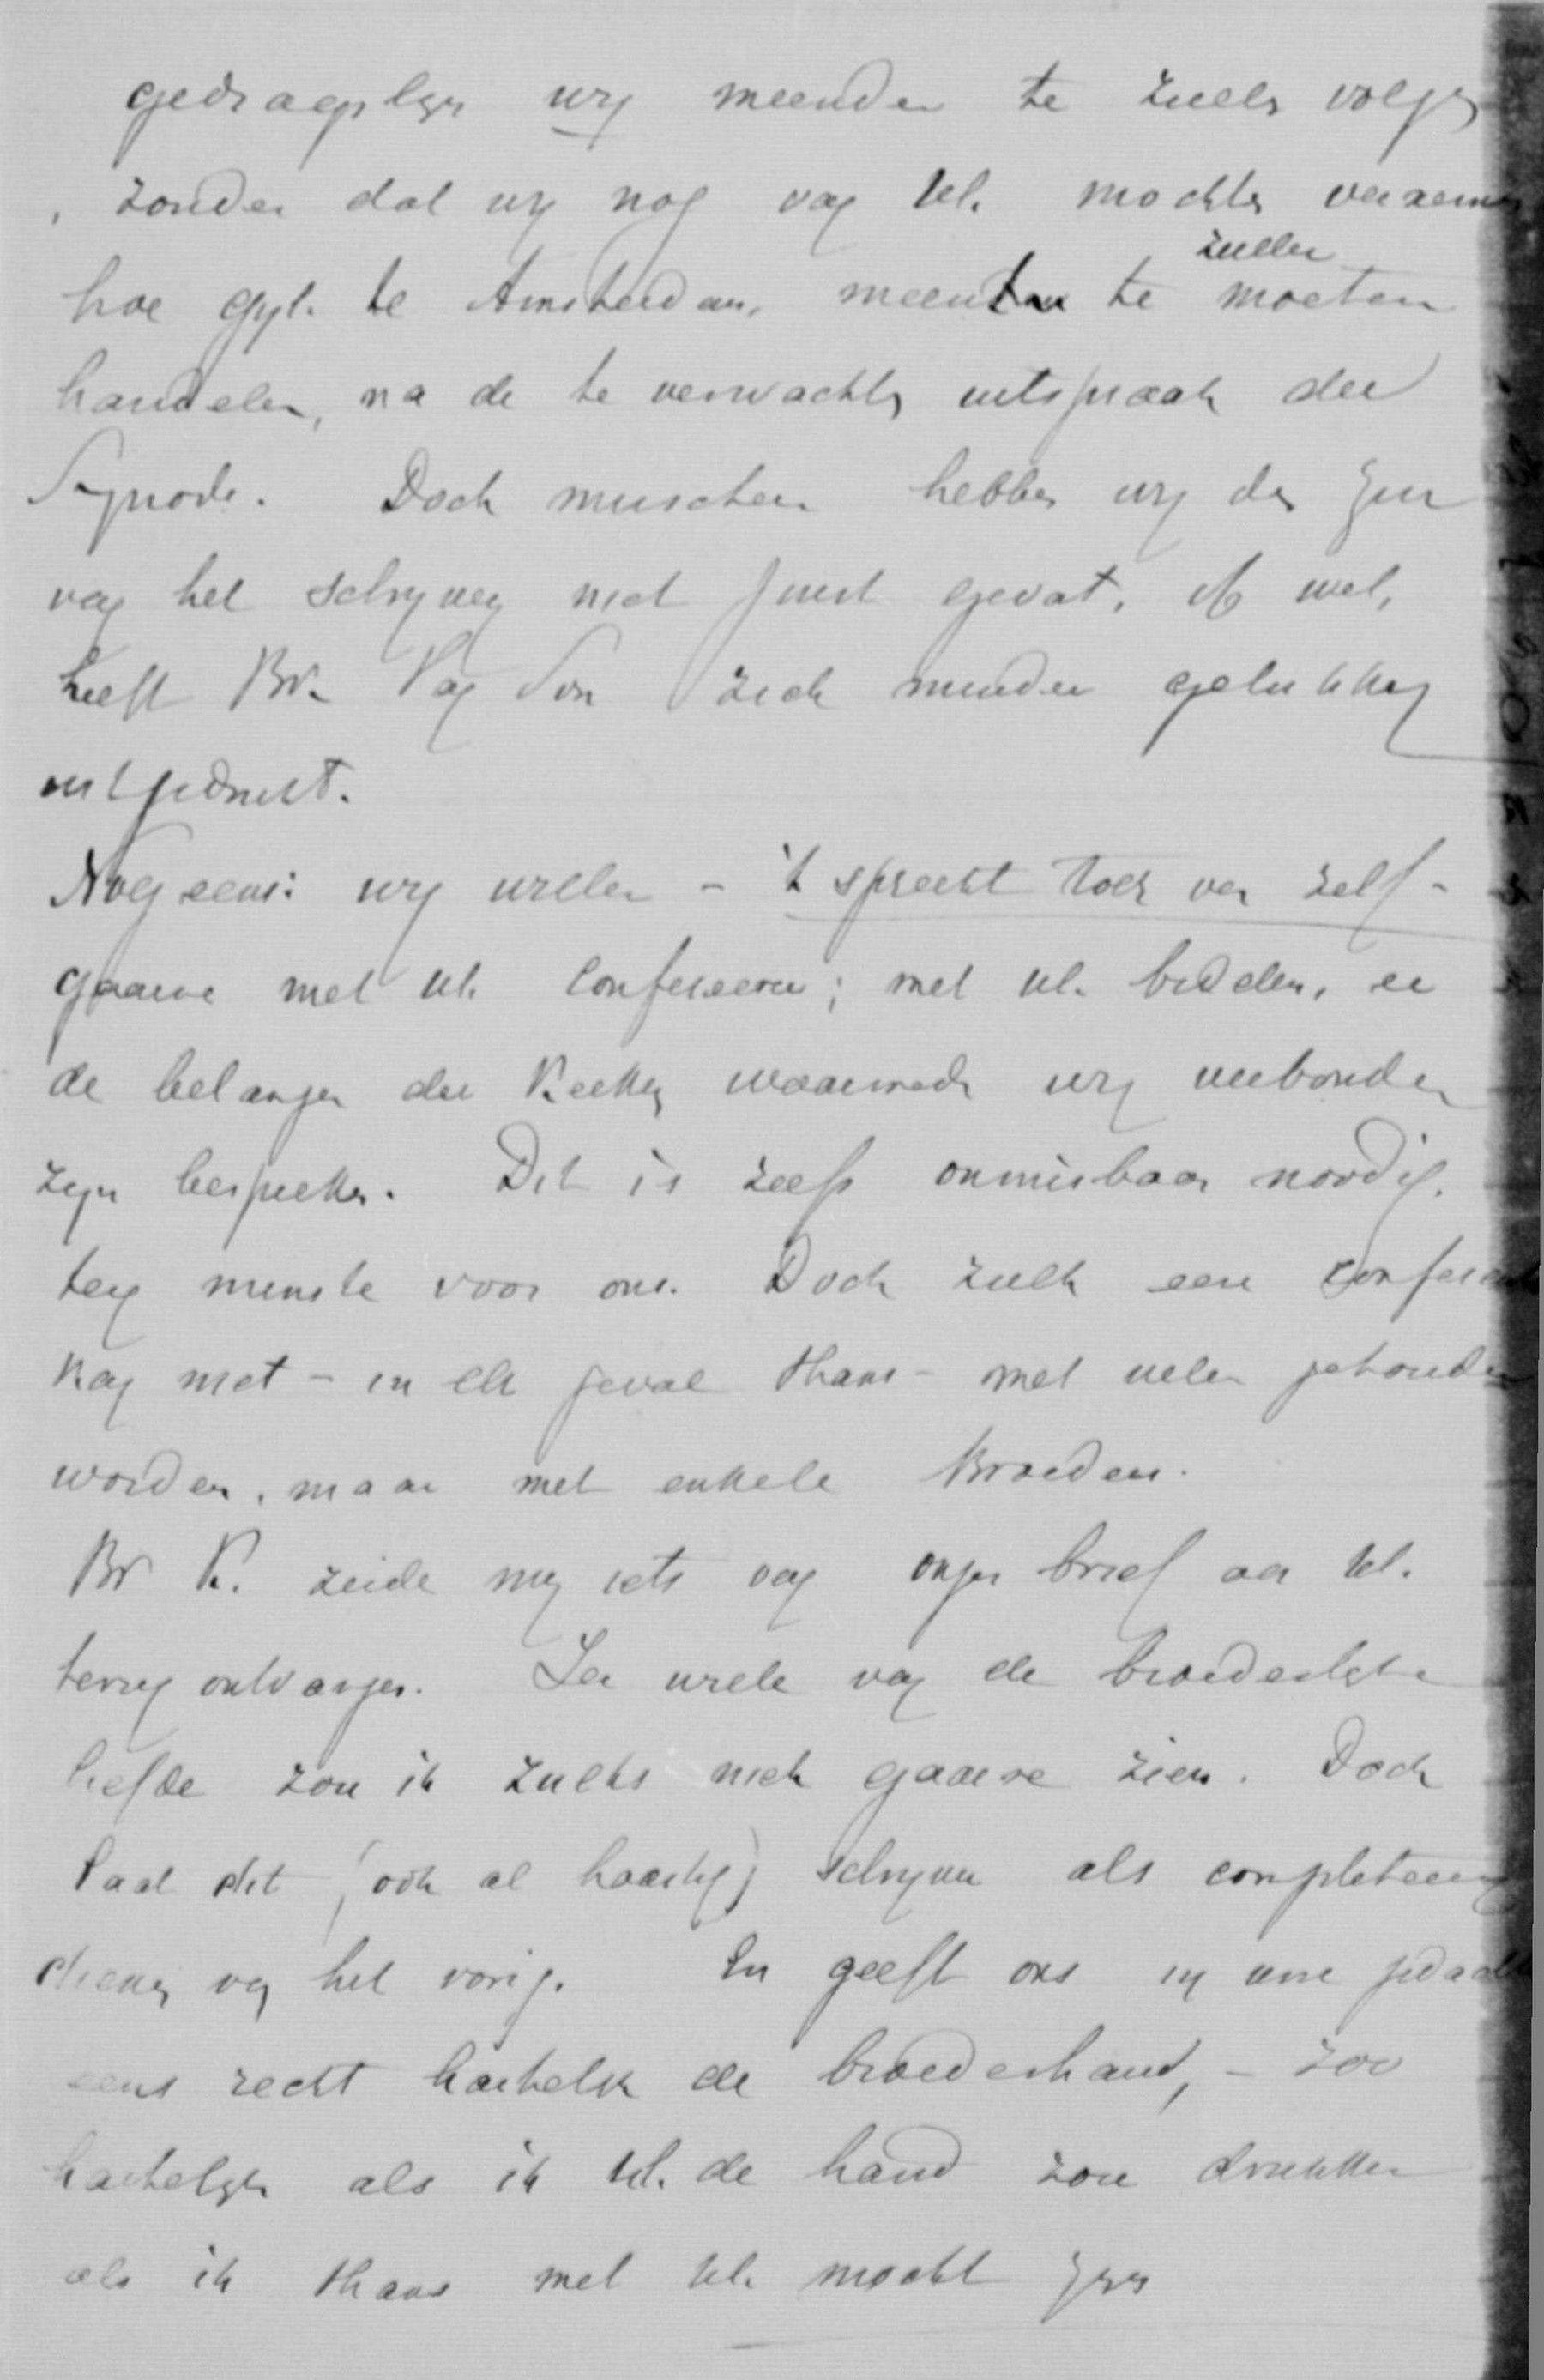 gedragslijn wij meenden te zullen volgen
, zonder dat wij nog van Ul. mochten vernemen
zullen
hoe gijl. te Amsterdam, meenden te moeten
handelen, na de te verwachten uitspraak der
Synode. Doch misschien hebben wij den zin
van het schrijven niet juist gevat, of wel,
heeft Br. Van Son zich minder gelukkig
uitgedrukt.
Nog eens: wij willen - 't spreekt toch van zelf -
gaarne met Ul. confereeren; met Ul. bidden, en
de belangen der Kerken waarmede wij verbonden
zijn bespreken. Dit is zelfs onmisbaar noodig.
ten minste voor ons. Doch zulk een conferentie
kan niet - in elk geval thans - met velen gehouden
worden, maar met enkele Broeders.
Br K. zeide mij iets van onzen brief aan Ul.
terug ontvangen. Ter wille van de broederlijke
liefde zou ik zulks niet gaarne zien. Doch
laat dit (ook al haastig) schrijven als completeering
dienen van het vorig. En geeft ons in uwe gedachten
eens recht hartelijk de broederhand, - zoo
hartelijk als ik Ul. de hand zou drukken
als ik thans met Ul. mocht zijn